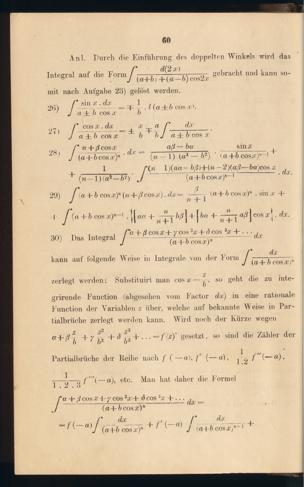 60
Anl. Durch die Einführung des doppelten Winkels wird das
Integral auf die Form ∫ d(2x) / ((a+b) + (a−b) cos2x) gebracht und kann so-
mit nach Aufgabe 23) gelöst werden.
26) ∫ sin x . dx / (a ± b cos x) = ∓ 1/b . l (a ± b cos x).
27) ∫ cos x . dx / (a ± b cos x) = ± x/b ∓ a/b ∫ dx / (a ± b cos x) .
28) ∫ (α + β cos x) / (a+b cos x)ⁿ . dx = (aβ − bα) / ((n − 1) (a² − b²)) . sin x / (a+b cos x)ⁿ⁻¹ +
+ 1 / ((n−1)(a²−b²)) . ∫ ((n − 1)(aα − bβ) + (n − 2)(aβ − bα) cos x) / (a+b cos x)ⁿ⁻¹ . dx.
29) ∫ (a + b cos x)ⁿ (α + β cos x) . dx = β / (n + 1) (a + b cos x)ⁿ . sin x +
+ ∫ (a + b cos x)ⁿ⁻¹ . {[aα + n/(n+1) bβ] + [bα + n/(n+1) aβ] cos x} . dx.
30) Das Integral ∫ (α + β cos x + γ cos ²x + δ cos ³x + . . .) / (a + b cos x)ⁿ dx
kann auf folgende Weise in Integrale von der Form ∫ dx / (a + b cos x)ⁿ
zerlegt werden: Substituirt man cos x = z/b, so geht die zu inte-
grirende Function (abgesehen vom Factor dx) in eine rationale
Function der Variablen z über, welche auf bekannte Weise in Par-
tialbrüche zerlegt werden kann. Wird noch der Kürze wegen
α + β z/b + γ z²/b² + δ z³/b³ + . . . = f (z) gesetzt, so sind die Zähler der
Partialbrüche der Reihe nach f (−a), f′ (−a), 1/1.2 f″ (−a),
1/1 . 2 . 3 f‴ (−a), etc. Man hat daher die Formel
∫ (α + β cos x + γ cos ²x + δ cos ³x + . . .) / (a + b cos x)ⁿ dx =
= f (−a) ∫ dx / (a + b cos x)ⁿ + f′ (−a) ∫ dx / (a + b cos x)ⁿ⁻¹ +